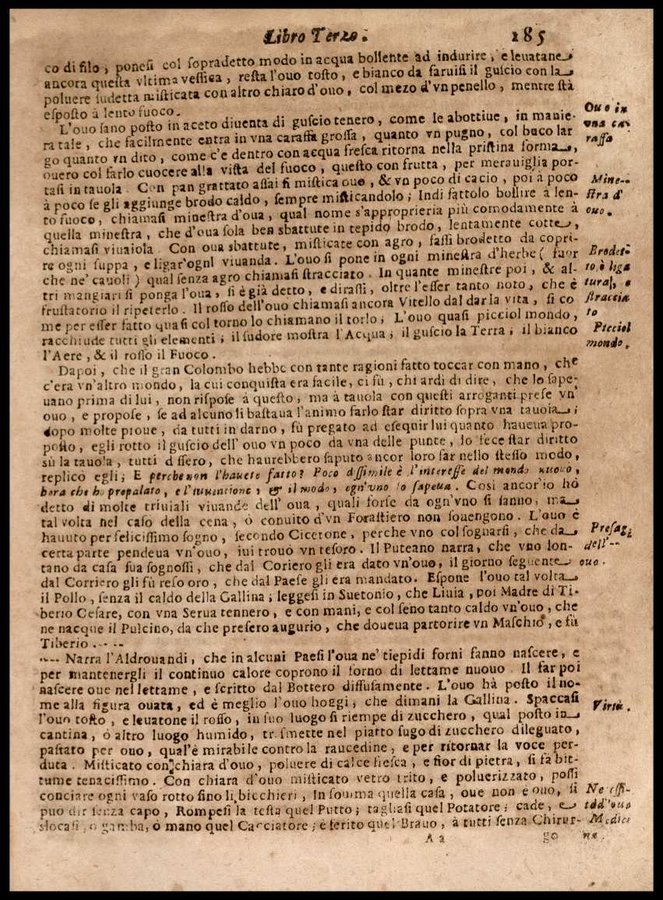 Libro Terzo. 185
co di filo, ponesi col sopradetto modo in acqua bollente ad indurire, e leuatane
ancora questa vltima vessica, resta l'ouo tosto, e bianco da faruisi il guscio con la
poluere sudetta misticata con altro chiaro d'ouo, col mezo d'vn penello, mentre stà
esposto à lento fuoco.
L'ouo sano posto in aceto diuenta di guscio tenero, come le abottiue, in manie-
ra tale, che facilmente entra in vna caraffa grossa, quanto vn pugno, col buco lar
go quanto vn dito, come c'è dentro con acqua fresca ritorna nella pristina forma,
ouero col farlo cuocere alla vista del fuoco, questo con frutta, per merauiglia por-
tasi in tauola. Con pan grattato assai si mistica oue, & vn poco di cacio, poi à poco
à poco se gli aggiunge brodo caldo, sempre misticandolo; Indi fattolo bollire à len-
to fuoco, chiamasi minestra d'oua, qual nome s'approprieria più comodamente à
quella minestra, che d'oua sola ben sbattute in tepido brodo, lentamente cotte,
chiamasi viuaiola. Con oua sbattute, misticate con agro, fassi brodetto da copri-
re ogni suppa, e ligar'ogni viuanda. L'ouo si pone in ogni minestra d'herbe (fuor
che ne' cauoli) qual senza agro chiamasi stracciato. In quante minestre poi, & al-
tri mangiari si ponga l'oua, si è già detto, e dirassi, oltre l'esser tanto noto, che è
frustatorio il ripeterlo. Il rosso dell'ouo chiamasi ancora Vitello dal dar la vita, si co
me per esser fatto quasi col torno lo chiamano il torlo; L'ouo quasi picciol mondo,
racchiude tutti gli elementi; il sudore mostra l'Acqua; il guscio la Terra; il bianco
l'Aere, & il rosso il Fuoco.
Dapoi, che il gran Colombo hebbe con tante ragioni fatto toccar con mano, che
c'era vn'altro mondo, la cui conquista era facile, ci fù, chi ardi di dire, che lo sape-
uano prima di lui, non rispose à questo, ma à tauola con questi arroganti prese vn'
ouo, e propose, se ad alcuno li bastaua l'animo farlo star diritto sopra vna tauola;
dopo molte pioue, da tutti in darno, fù pregato ad esequir lui quanto haueua pro-
posto, egli rotto il guscio dell'ouo vn poco da vna delle punte, lo fece star diritto
sù la tauola, tutti dissero, che haurebbero saputo ancor loro far nello stesso modo,
replicò egli; E perche non l'hauete fatto? Poco dissimile è l'interesse del mondo nuouo,
hora che hò propalato, e l'inuencione, & il modo, ogn'vno lo sapeua. Così ancor'io hò
detto di molte triuiali viuande dell'oua, quali forse da ogn'vno si fanno, ma
tal volta nel caso della cena, ò conuito d'vn Forastiero non souengono. L'ouo è
hauuto per felicissimo sogno, secondo Cicerone, perche vno col sognarsi, che da
certa parte pendeua vn'ouo, iui trouò vn tesoro. Il Puteano narra, che vno lon-
tano da casa sua sognossi, che dal Coriero gli era dato vn'ouo, il giorno seguente
dal Corriero gli fù reso oro, che dal Paese gli era mandato. Espone l'ouo tal volta
il Pollo, senza il caldo della Gallina; leggesi in Suetonio, che Liuia, poi Madre di Ti-
berio Cesare, con vna Serua tennero, e con mani, e col seno tanto caldo vn'ouo, che
ne nacque il Pulcino, da che presero augurio, che doueua partorire vn Maschio, e fù
Tiberio.
Narra l'Aldrouandi, che in alcuni Paesi l'oua ne' tiepidi forni fanno nascere, e
per mantenergli il continuo calore coprono il forno di lettame nuouo. Il far poi
nascere oue nel lettame, e scritto dal Bottero diffusamente. L'ouo hà posto il no-
me alla figura ouata, ed è meglio l'ouo hoggi, che dimani la Gallina. Spaccasi
l'ouo tosto, e leuatone il rosso, in suo luogo si riempe di zucchero, qual posto in
cantina, ò altro luogo humido, trasmette nel piatto sugo di zucchero dileguato,
passato per ouo, qual'è mirabile contro la raucedine, e per ritornar la voce per-
duta. Misticato con chiara d'ouo, poluere di calce fresca, e fior di pietra, si fà bit-
tume tenacissimo. Con chiara d'ouo misticato vetro trito, e poluerizzato, possi
conciare ogni vaso rotto sino li bicchieri, In somma quella casa, oue non è ouo, si
può dir senza capo, Rompesi la testa quel Putto; tagliasi quel Potatore; cade, e
slocasi, o gamba, ò mano quel Cacciatore; è ferito quel Brauo, à tutti senza Chirur-
Aa go
Ouo in
vna ca-
raffa
Mine-
stra d'
ouo.
Brodet-
to, è liga
tura, e
straccia
to
Picciol
mondo.
Presagi
dell'
ouo.
Virtù.
Ne essi-
tà d'ouo
Medici
ne.